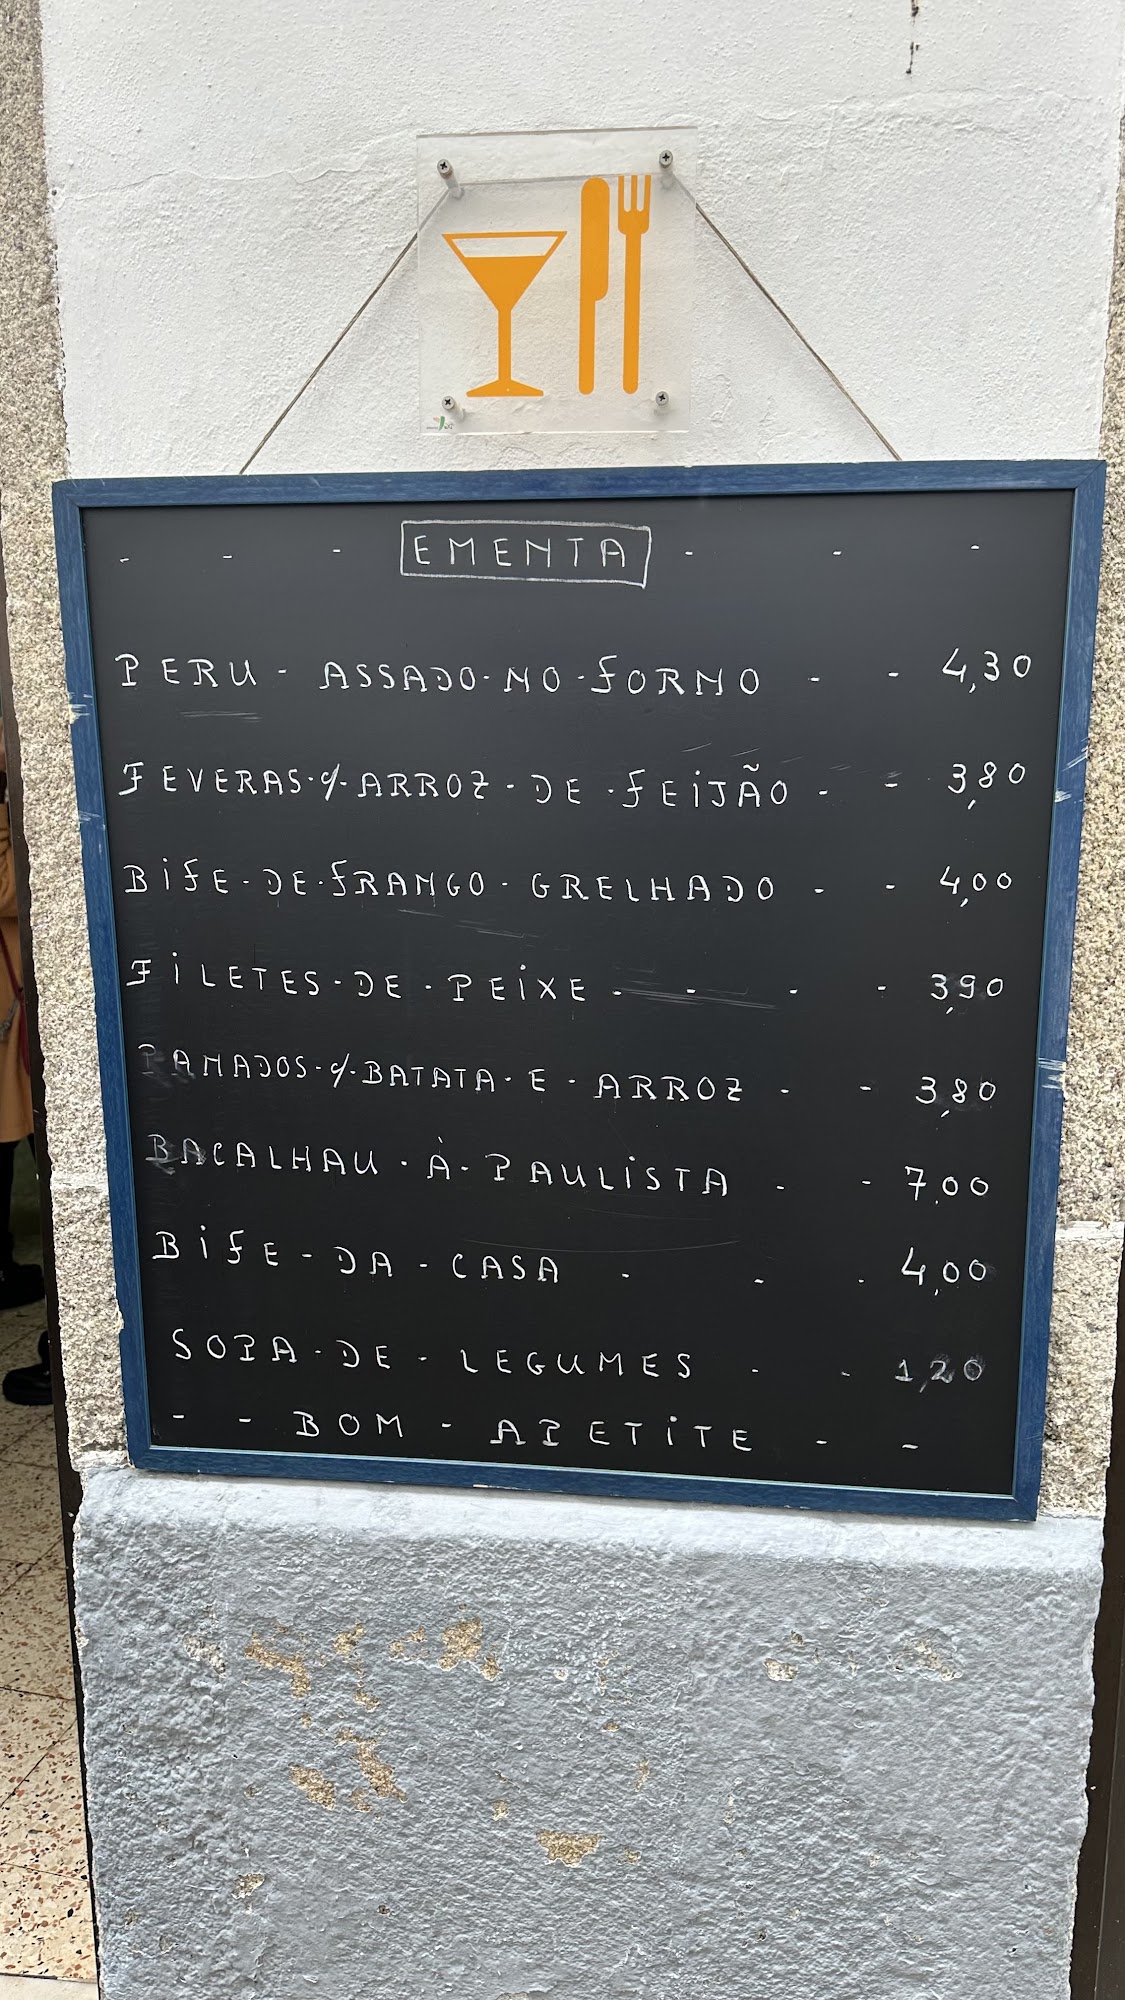 - - - EMENTA - - -
PERU - ASSADO - NO - FORNO - - 4,30
FEVERAS - c/ - ARROZ - DE - FEIJÃO - - 3,80
BIFE - DE - FRANGO - GRELHADO - - 4,00
FILETES - DE - PEIXE - - - - 3,90
PANADOS - c/ - BATATA - E - ARROZ - - 3,80
BACALHAU - À - PAULISTA - - 7,00
BIFE - DA - CASA - - - 4,00
SOPA - DE - LEGUMES - - 1,20
- - BOM - APETITE - -